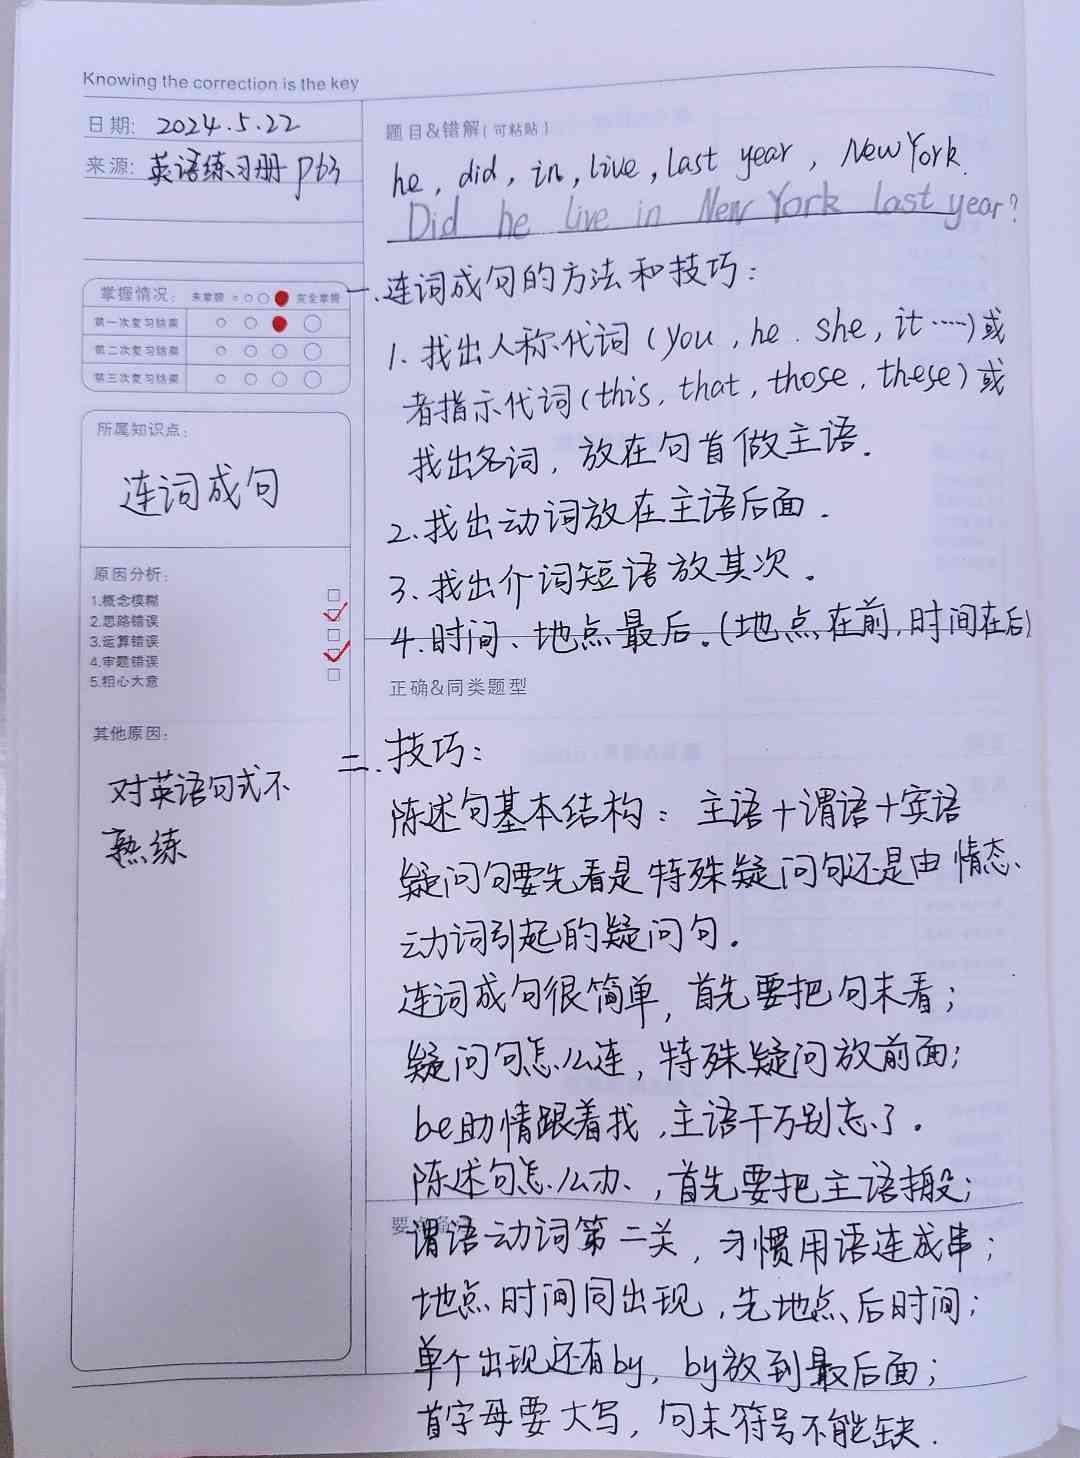 Knowing the correction is the key
日期: 2024.5.22
来源: 英语练习册 P63
掌握情况: 未掌握 完全掌握
第一次复习结果
第二次复习结果
第三次复习结果
所属知识点:
连词成句
原因分析:
1.概念模糊
2.思路错误
3.运算错误
4.审题错误
5.粗心大意
其他原因:
对英语句式不
熟练
题目&错解(可粘贴)
he, did, in, live, last year, New York.
Did he live in New York last year?
一.连词成句的方法和技巧:
1.找出人称代词(you, he. she, it……)或
者指示代词(this, that, those, these)或
找出名词,放在句首做主语.
2.找出动词放在主语后面.
3.找出介词短语放其次.
4.时间、地点最后.(地点在前,时间在后)
正确&同类题型
二.技巧:
陈述句基本结构: 主语+谓语+宾语
疑问句要先看是特殊疑问句还是由情态、
动词引起的疑问句.
连词成句很简单,首先要把句末看;
疑问句怎么连,特殊疑问放前面;
be助情跟着找,主语千万别忘了.
陈述句怎么办、,首先要把主语搬;
谓语动词第二关,习惯用语连成串;
地点时间同出现,先地点、后时间;
单个出现还有by, by放到最后面;
首字母要大写,句末符号不能缺.